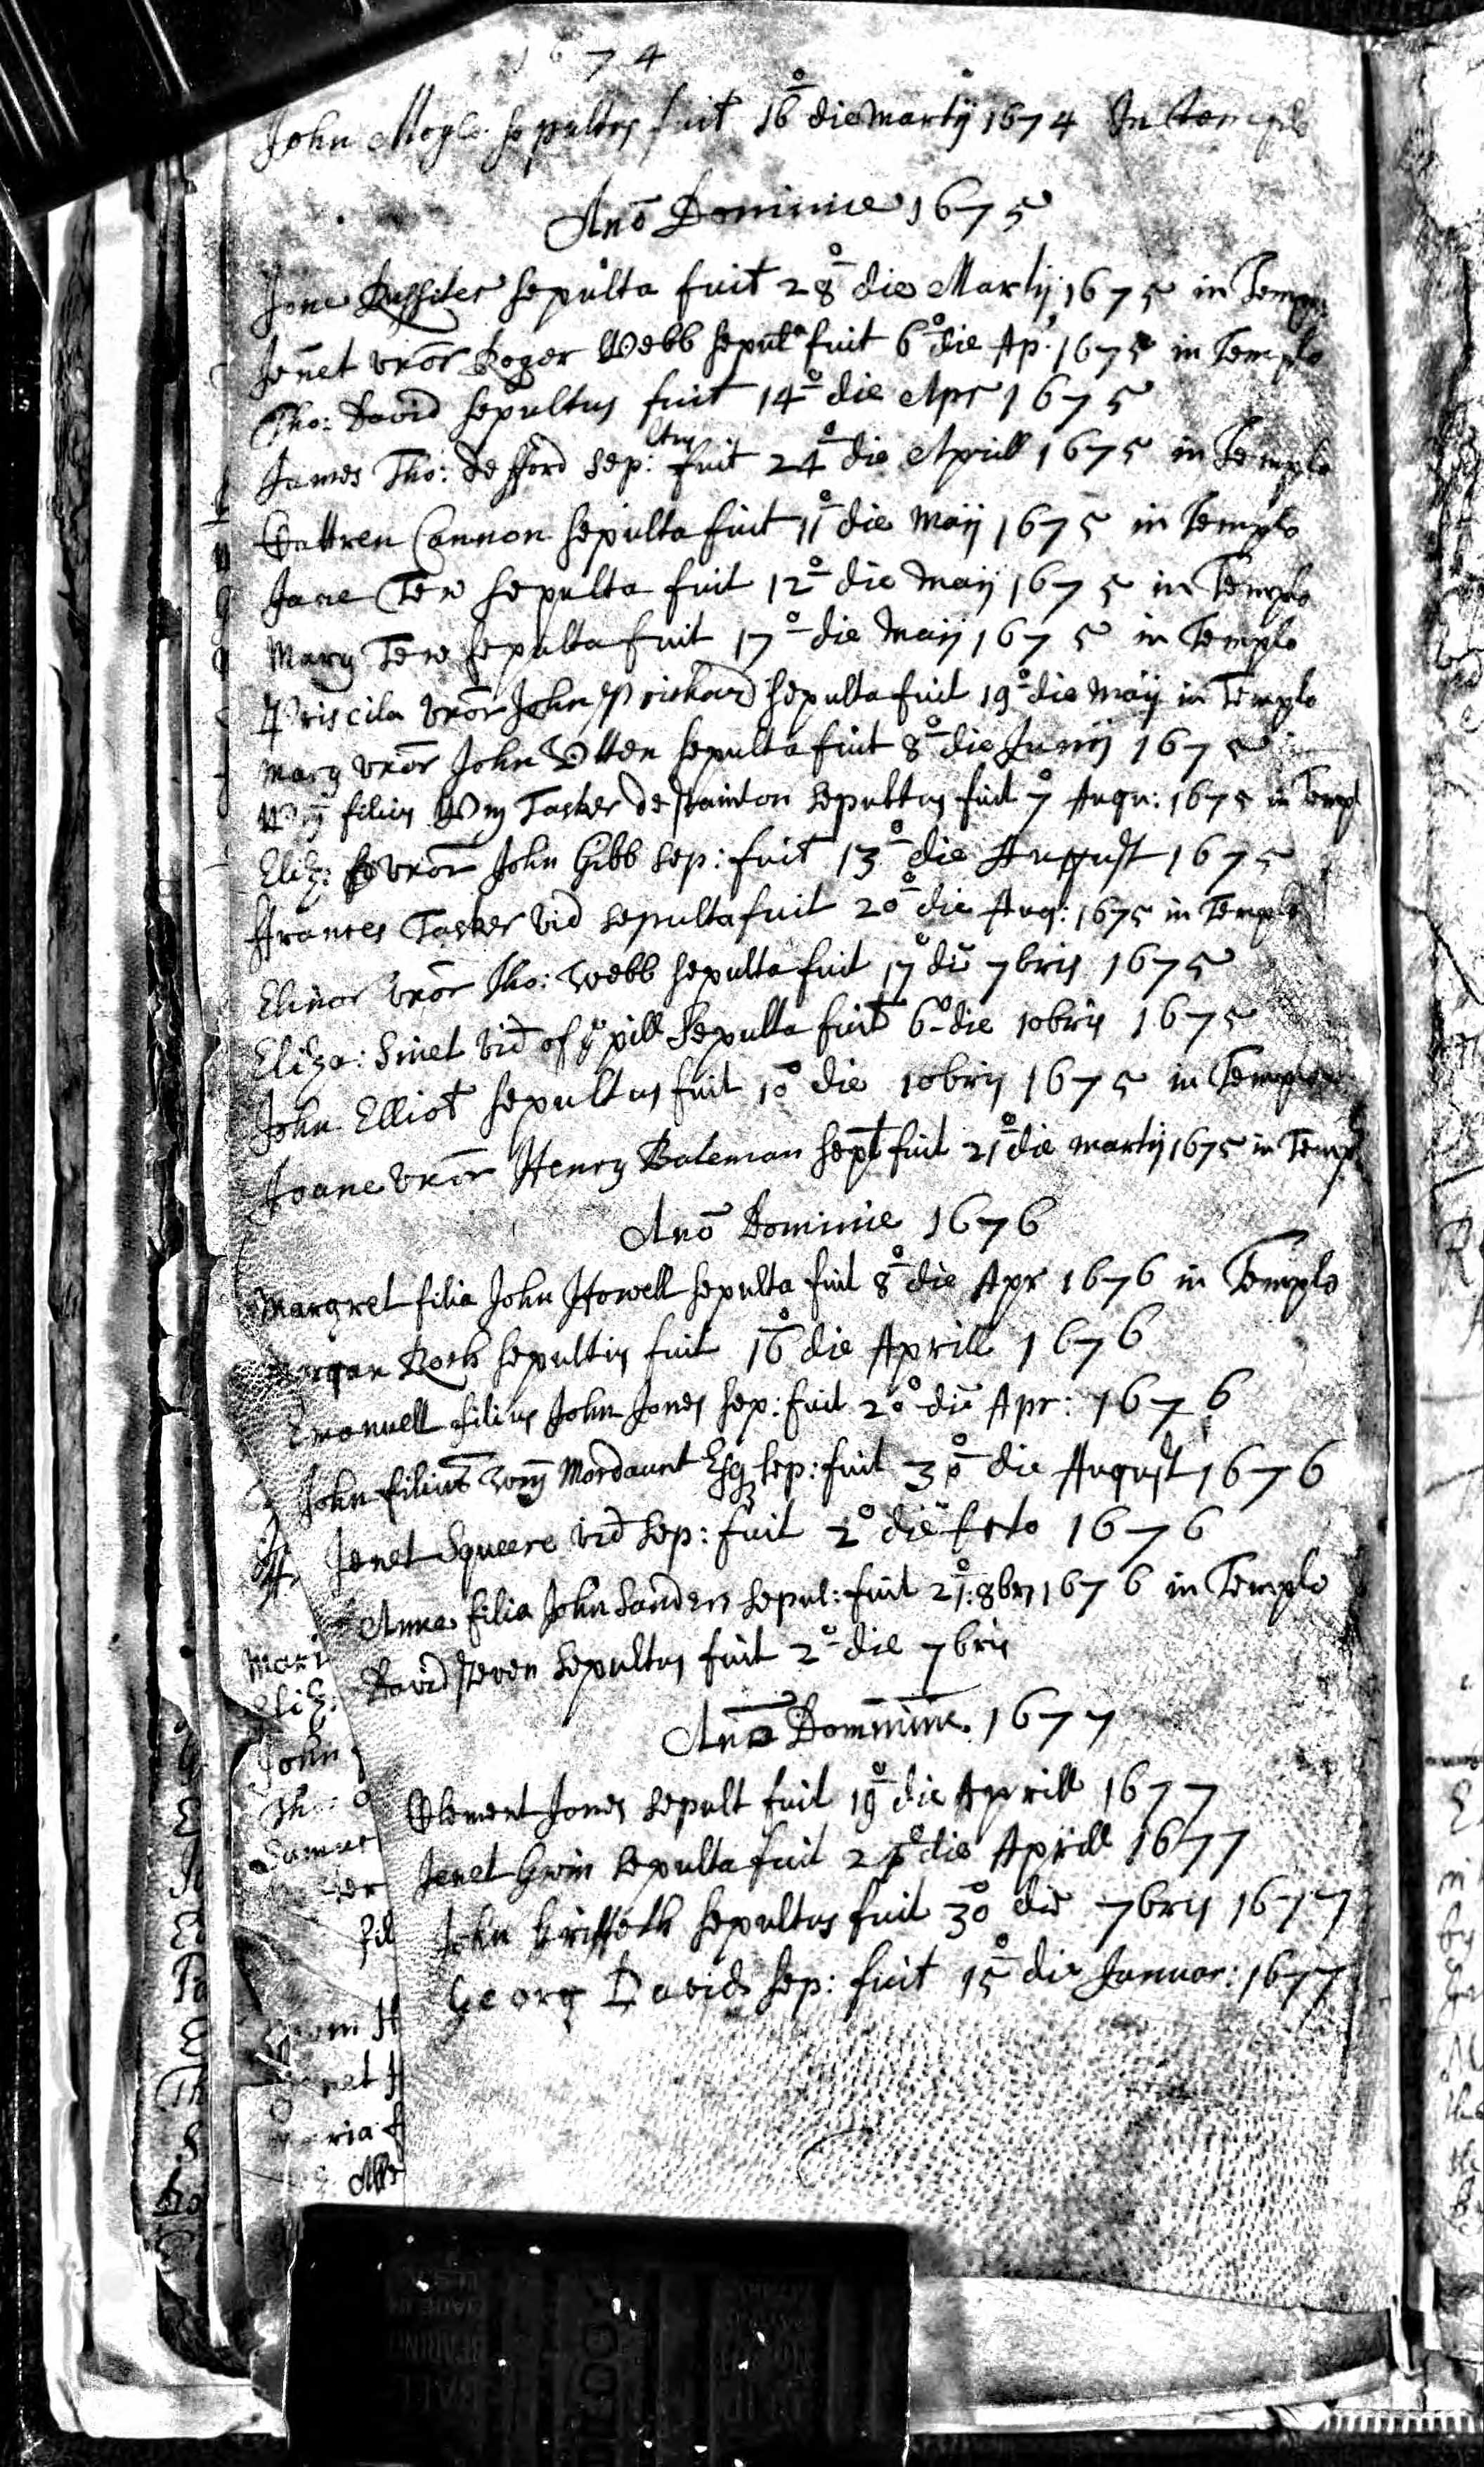 1674
John Moyle sepultus fuit 16º die Martij 1674 In templo
Anō Dominie 1675
Jone Rossiter sepulta fuit 28º die Martij 1675 in Temp
Jenet vxōr Roger Webb sepulta fuit 6º die Ap: 1675 in Templo
Tho: David sepultus fuit 14º die Apr 1675
James Tho: de fford sep:ltus fuit 24º die Aprill 1675 in Templo
Cattren Cannon sepulta fuit 11º die Maij 1675 in Templo
Jane Tew sepulta fuit 12º die Maij 1675 in Templo
Mary Tew sepulta fuit 17º die Maij 1675 in Templo
Priscila vxōr John Prichard sepulta fuit 19º die Maij in Templo
Mary vxōr John Otten sepulta fuit 8º die Junij 1675
Wm filius Wm Tasker de stainton sepultus fuit 7º Augu: 1675 in Templ
Eliz: vxōr John Gibb sep: fuit 13º die August 1675
Frances Tasker vid sepulta fuit 20º die Aug: 1675 in Templo
Elinor vxōr Tho: Webb sepulta fuit 17º die 7bris 1675
Eliza: Sinet vid of ye pill Sepulta fuit 6º die 10bris 1675
John Elliot sepultus fuit 10º die 10bris 1675 in Templo
Joane vxōr Henry Bateman sept fuit 21º die Martij 1675 in Temp
Anō Dominie 1676
Margret filia John Howell sepulta fuit 8º die Apr 1676 in Templo
Morgan Roch sepultus fuit 16º die Aprill 1676
Emanuell filius John Jones sep: fuit 20º die Apr: 1676
John filius Wm Mordaunt Esq sep: fuit 30º die August 1676
Jenet Squeere vid sep: fuit 2º die 1676
Anne filia John Sanders sepul: fuit 21º: 8bris 1676 in Templo
David steven sepultus fuit 2º die 7bris
Anō Dommine 1677
Clement Jones sepult fuit 19º die Aprill 1677
Jenet Gwin sepulta fuit die Aprill 1677
John Griffeth sepultus fuit 30º die 7bris 1677
Georg Davids sep: fuit 15º die Januar: 1677
Mari
Eliz:
John
Samue
fil